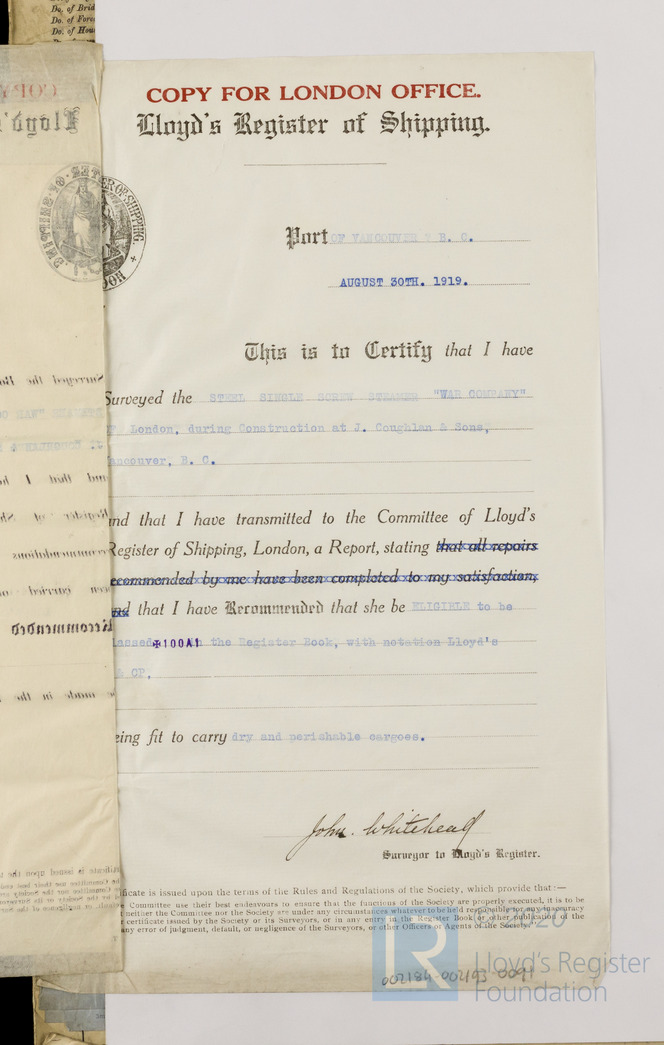 Do. of Brid
Do. of Fore
Do. of Hou
COPY FOR LONDON OFFICE.
Lloyd's Register of Shipping.
Port OF VANCOUVER B. C.
AUGUST 30TH. 1919.
This is to Certify that I have
Surveyed the STEEL SINGLE SCREW STEAMER "WAR COMPANY"
London, during Construction at J. Coughlan & Sons,
ancouver, B. C.
nd that I have transmitted to the Committee of Lloyd's
Register of Shipping, London, a Report, stating that all repairs
ecommended by me have been completed to my satisfaction,
and that I have Recommended that she be ELIGIBLE to be
lassed ✠100A1 in the Register Book, with notation Lloyd's
& CP,
eing fit to carry dry and perishable cargoes.
John. Whitehead
Surveyor to Lloyd's Register.
ficate is issued upon the terms of the Rules and Regulations of the Society, which provide that:—
Committee use their best endeavours to ensure that the functions of the Society are properly executed, it is to be
neither the Committee nor the Society are under any circumstances whatever to be held responsible for any inaccuracy
certificate issued by the Society or its Surveyors, or in any entry in the Register Book or other publication of the
any error of judgment, default, or negligence of the Surveyors, or other Officers or Agents of the Society."
002184-002193-0091
© 2020
LR
Lloyd's Register
Foundation